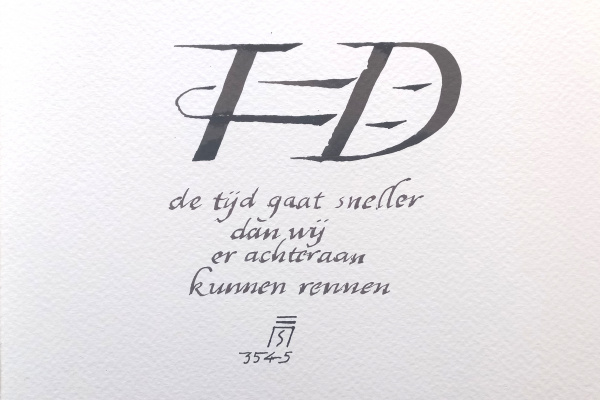 TD
de tijd gaat sneller
dan wij
er achteraan
kunnen rennen
S
3545